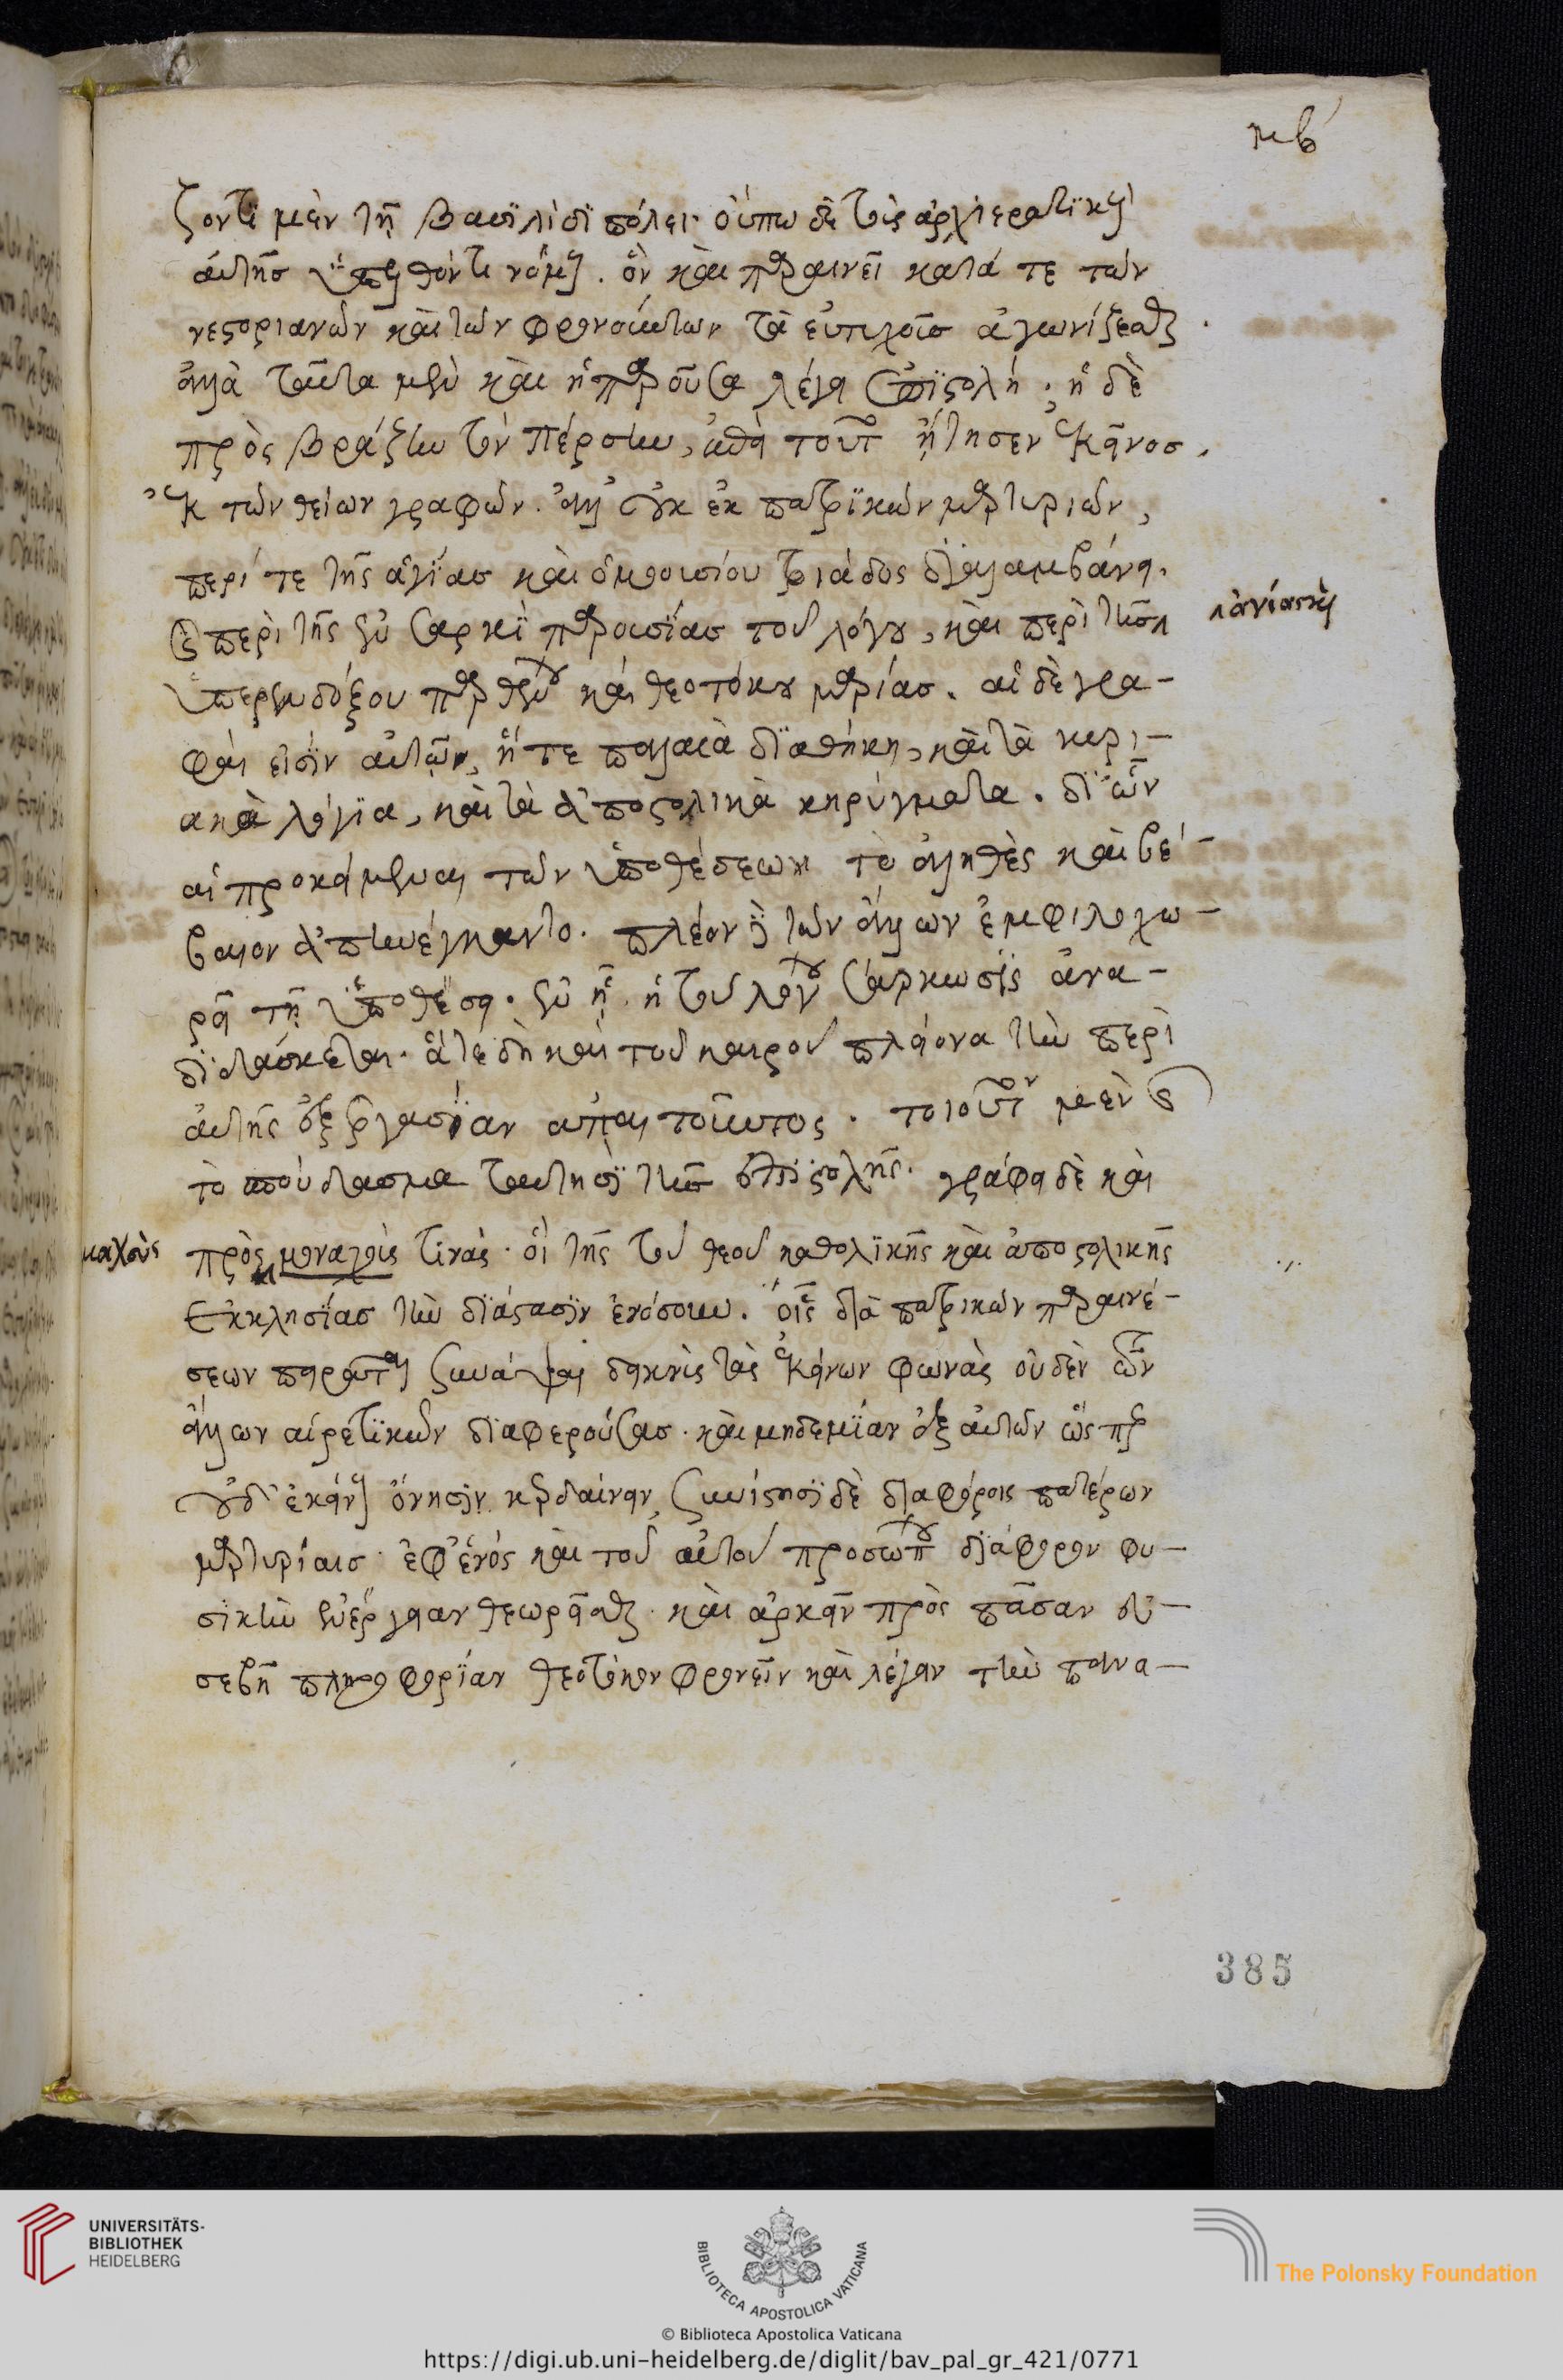 ζοντι μὲν τῇ βασιλίδι πόλει· οὔπω δὲ τοῖς ἀρχιερατικοῖς
αὐτῆς ὑπελθόντι νόμοις. ὃν καὶ παραινεῖ κατά τε τῶν
νεστοριανῶν καὶ τῶν φρονούντων τὰ εὐτυχοῦς ἀγωνίζεσθαι.
ἀλλὰ ταῦτα μὲν καὶ ἡ παροῦσα λέγει ἐπιστολή· ἡ δὲ
πρὸς βράζην τὸν πέρσην, ἐπεὶ τοῦτο ᾔτησεν ἐκεῖνος,
ἐκ τῶν θείων γραφῶν. ἀλλ' οὐκ ἐκ πατρικῶν μαρτυριῶν,
περί τε τῆς ἁγίας καὶ ὁμοουσίου τριάδος διαλαμβάνει.
καὶ περὶ τῆς ἐν σαρκὶ παρουσίας τοῦ λόγου, καὶ περὶ τῆς
ὑπερενδόξου παρθένου καὶ θεοτόκου μαρίας. αἱ δὲ γρα-
φαὶ εἰσὶν αὐτῶν, ἥ τε παλαιὰ διαθήκη, καὶ τὰ κυρι-
ακὰ λόγια, καὶ τὰ ἀποστολικὰ κηρύγματα. δι' ὧν
αἱ προκείμεναι τῶν ὑποθέσεων τὸ ἀληθὲς καὶ βέ-
βαιον ἀπηνέγκαντο. πλέον δὲ τῶν ἄλλων ἐμφιλοχω-
ρεῖ τῇ ὑποθέσει. ἐν ᾗ ἡ τοῦ λόγου σάρκωσις ἀνα-
διδάσκεται. ἅτε δὴ καὶ τοῦ καιροῦ πλείονα τὴν περὶ
αὐτῆς ἐξεργασίαν ἀπαιτοῦντος. τοιοῦτον μὲν καὶ
τὸ σπούδασμα ταυτησὶ τῆς ἐπιστολῆς. γράφει δὲ καὶ
μαχοὺς
πρὸς μοναχοὺς τινὰς. οἳ τῆς τοῦ θεοῦ καθολικῆς καὶ ἀποστολικῆς
ἐκκλησίας τὴν διάστασιν ἐνόσουν. οἷς διὰ πατρικῶν παραινέ-
σεων πειρᾶται συνάψαι δεικνὺς τὰς ἐκείνων φωνὰς οὐδὲν τῶν
ἄλλων αἱρετικῶν διαφερούσας. καὶ μηδεμίαν ἐξ αὐτῶν ὥσπερ
οὐδ' ἐκείνοις ὄνησιν κερδαίνειν, συνίστησι δὲ διαφόροις πατέρων
μαρτυρίαις. ἐφ' ἑνὸς καὶ τοῦ αὐτοῦ προσώπου διάφορον φυ-
σικὴν ἐνέργειαν θεωρεῖσθαι. καὶ ἀρκεῖν πρὸς πᾶσαν εὐ-
σεβῆ πληροφορίαν θεοτόκον φρονεῖν καὶ λέγειν τὴν πανα-
385
UNIVERSITÄTS-
BIBLIOTHEK
HEIDELBERG
BIBLIOTECA APOSTOLICA VATICANA
The Polonsky Foundation
© Biblioteca Apostolica Vaticana
https://digi.ub.uni-heidelberg.de/diglit/bav_pal_gr_421/0771